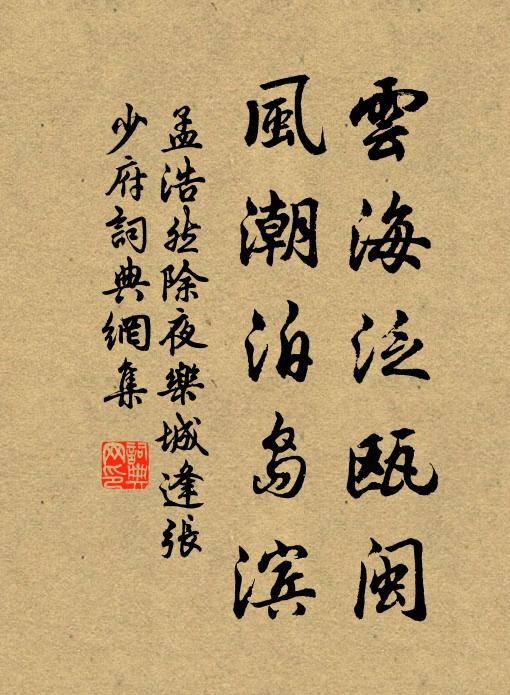 雲海泛瓯闽
風潮泊岛滨
孟浩然除夜樂城逢張
少府詞典網集
詞典
网印